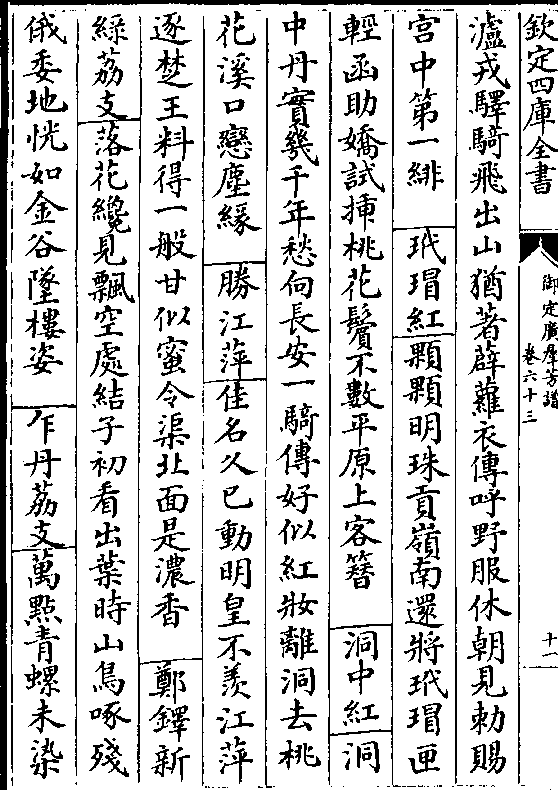 欽定四庫全書
御定廣羣芳譜
卷六十三
十一
瀘戎驛騎飛出山猶著薜蘿衣傳呼野服休朝見勅賜
宫中第一緋 玳瑁紅顆顆明珠貢嶺南還將玳瑁匣
輕函助嬌試揷桃花鬢不數平原上客簪 洞中紅洞
中丹實幾千年愁向長安一騎傳好似紅妝離洞去桃
花溪口戀塵緣 勝江萍佳名久已動明皇不羨江萍
逐楚王料得一般甘似蜜令渠北面是濃香 鄭鐸新
綠荔支落花纔見飄空處結子初看出葉時山鳥啄殘
俄委地恍如金谷墜樓姿 乍丹荔支萬點青螺未染